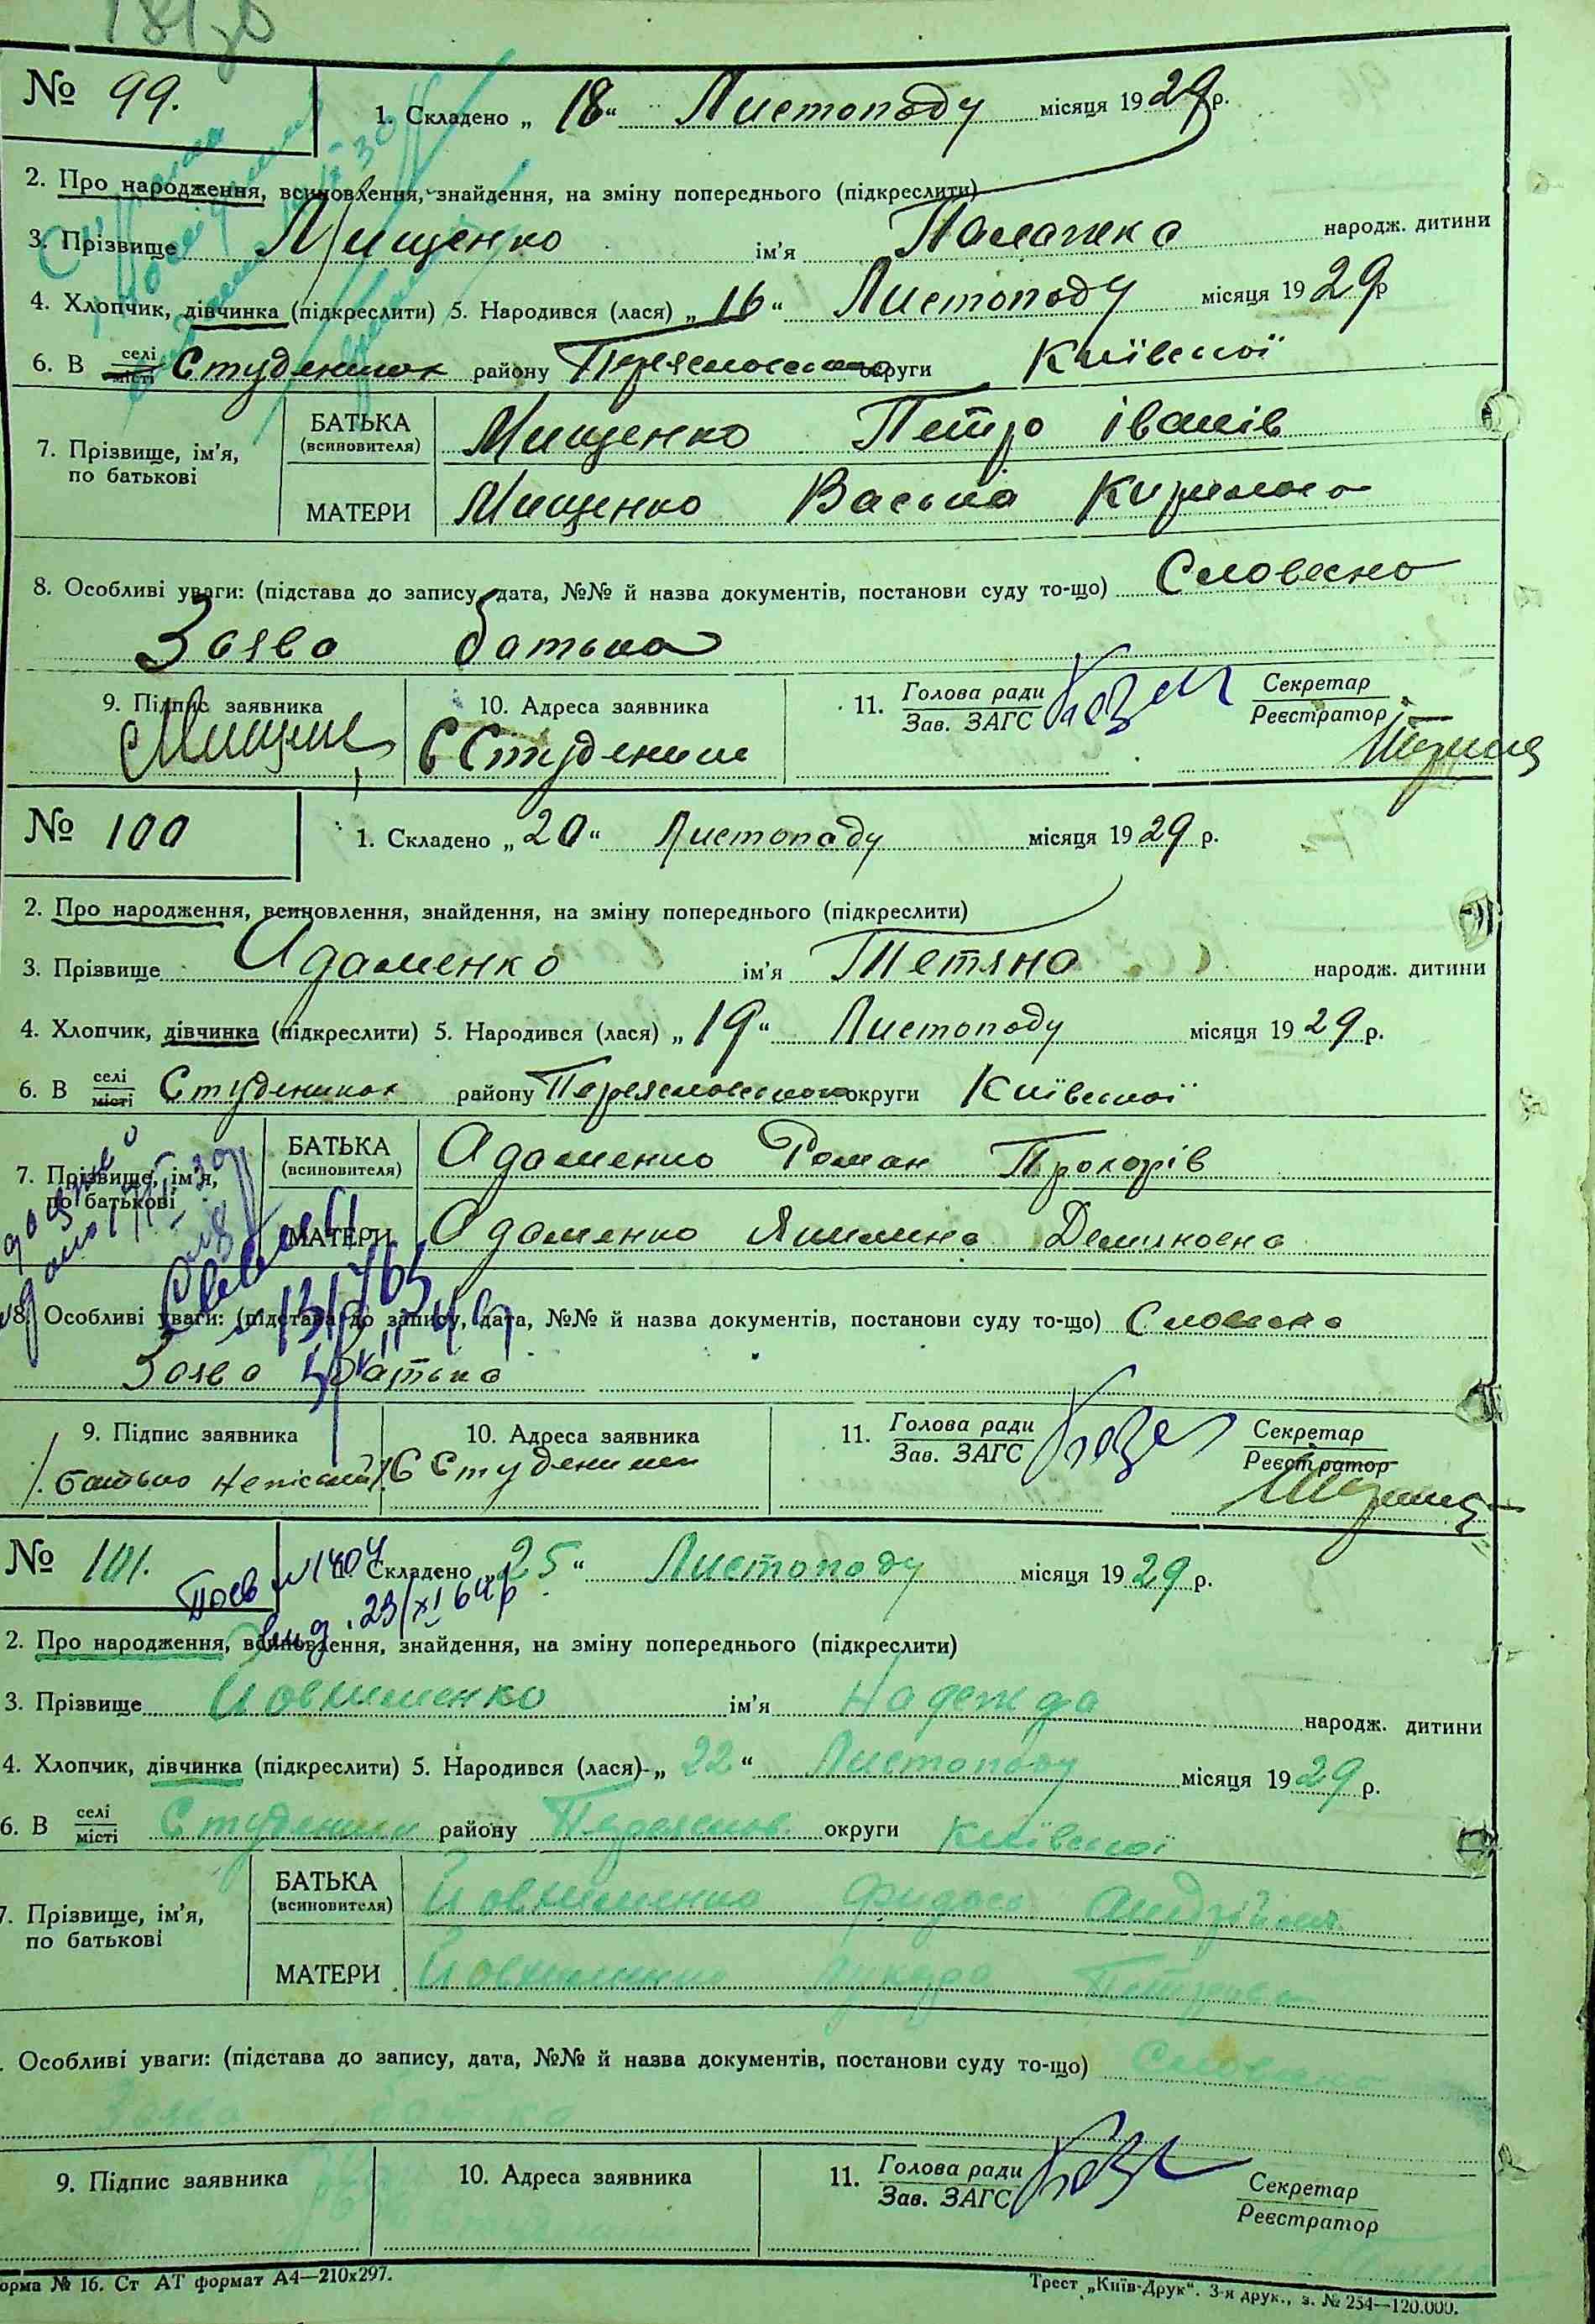 № 99. 1. Складено „ 18 “ Листопаду місяця 1929 р.
2. Про народження, всиновлення, знайдення, на зміну попереднього (підкреслити)
3. Прізвище Мищенко ім'я Палажка народж. дитини
4. Хлопчик, дівчинка (підкреслити) 5. Народився (лася) „ 16 “ Листопаду місяця 1929 р
6. В селі місті Студениках району Переяславського округи Київської
7. Прізвище, ім'я, по батькові
БАТЬКА (всиновителя) Мищенко Петро Іванів
МАТЕРИ Мищенко Васька Кирилова
8. Особливі уваги: (підстава до запису, дата, №№ й назва документів, постанови суду то-що) Словесно
Заява батька
9. Підпис заявника 10. Адреса заявника 11. Голова ради Зав. ЗАГС Секретар Реєстратор
С Студеники
№ 100 1. Складено „ 20 “ Листопаду місяця 1929 р.
2. Про народження, всиновлення, знайдення, на зміну попереднього (підкреслити)
3. Прізвище Адаменко ім'я Тетяна народж. дитини
4. Хлопчик, дівчинка (підкреслити) 5. Народився (лася) „ 19 “ Листопаду місяця 1929 р.
6. В селі місті Студениках району Переяславського округи Київської
7. Прізвище, ім'я, по батькові
БАТЬКА (всиновителя) Адаменко Роман Прокорів
МАТЕРИ Адаменко Якилина Демянова
8. Особливі уваги: (підстава до запису, дата, №№ й назва документів, постанови суду то-що) Словесно
Заява Батька
9. Підпис заявника 10. Адреса заявника 11. Голова ради Зав. ЗАГС Секретар Реєстратор
батько неписьмен. С Студеники
№ 101. 1. Складено „ 25 “ Листопаду місяця 1929 р.
№ 1404
23/XI 64 р
2. Про народження, всиновлення, знайдення, на зміну попереднього (підкреслити)
3. Прізвище Йовхименко ім'я Надежда народж. дитини
4. Хлопчик, дівчинка (підкреслити) 5. Народився (лася) „ 22 “ Листопаду місяця 1929 р.
6. В селі місті Студеники району Переяслов. округи Київської
7. Прізвище, ім'я, по батькові
БАТЬКА (всиновителя) Йовхименко Федось Андрійов.
МАТЕРИ Йовхименко Лукера Петрова
. Особливі уваги: (підстава до запису, дата, №№ й назва документів, постанови суду то-що) Словесно
Заява батька
9. Підпис заявника 10. Адреса заявника 11. Голова ради Зав. ЗАГС Секретар Реєстратор
орма № 16. Ст АТ формат А4—210х297. Трест „Київ-Друк“. 3-я друк., з. № 254—120.000.